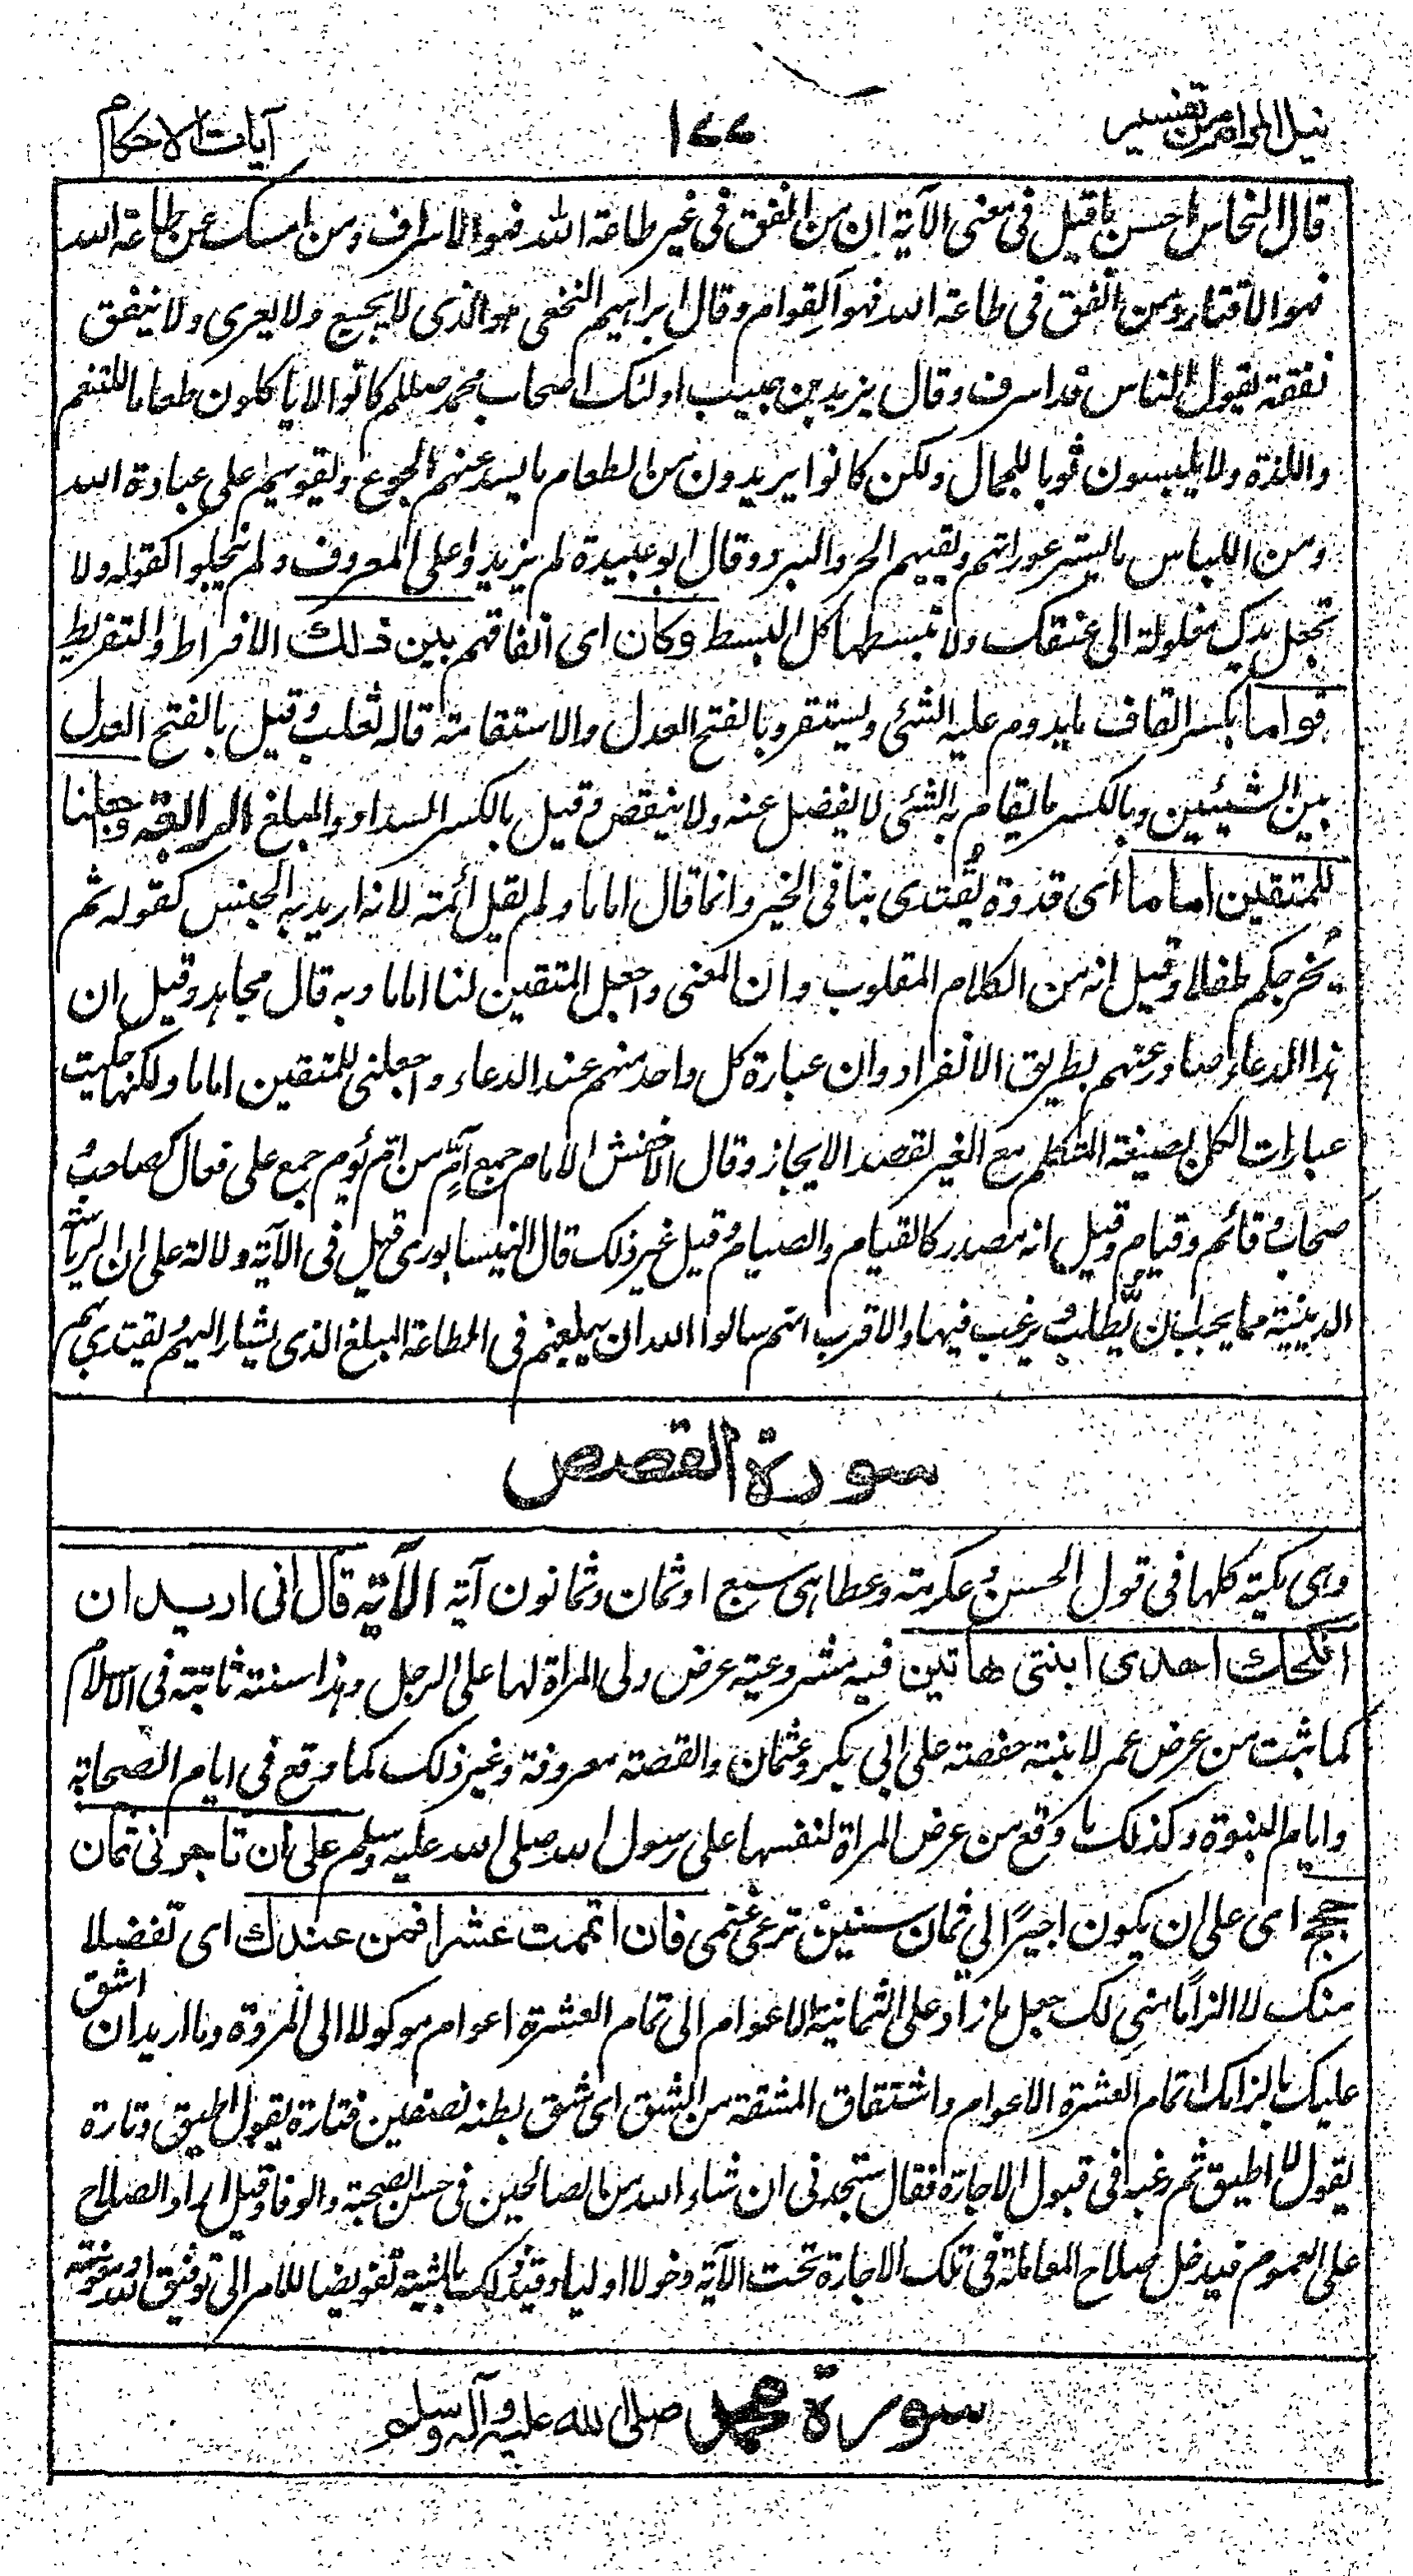 نيل المرام من تفسير
١٧٧
آيات الاحكام
قال النحاس احسن ما قيل فى معنى الآية ان من انفق فى غير طاعة الله فهو الاسراف ومن امسك عن طاعة الله
فهو الاقتار ومن انفق فى طاعة الله فهو القوام وقال ابراهيم النخعى هو الذى لا يجيع ولا يعرى ولا ينفق
نفقة يقول الناس قد اسرف وقال يزيد بن حبيب اولئك اصحاب محمد صللم كانوا لا ياكلون طعاما للتنعم
واللذة ولا يلبسون ثوبا للجمال ولكن كانوا يريدون من الطعام ما يسد عنهم الجوع ويقويهم على عبادة الله
ومن اللباس ما يستر عوراتهم ويقيهم الحر والبرد وقال ابو عبيدة لم يزيدوا على المعروف ولم يبخلوا كقوله ولا
تجعل يدك مغلولة الى عنقك ولا تبسطها كل البسط وكان اى انفاقهم بين ذلك الافراط والتفريط
قواما بكسر القاف ما يدوم عليه الشئ ويستقر وبالفتح العدل والاستقامة قاله ثعلب وقيل بالفتح العدل
بين الشيئين وبالكسر ما يقام به الشئ لا يفضل عنه ولا ينقص وقيل بالكسر السداد والمبلغ الرابعة واجعلنا
للمتقين اماما اى قدوة يُقتدى بنا فى الخير وانما قال اماما ولم يقل ائمة لانه اريد به الجنس كقوله ثم
يُخرجكم طفلا وقيل انه من الكلام المقلوب وان المعنى واجعل المتقين لنا اماما وبه قال مجاهد وقيل ان
هذا الدعاء صادر عنهم بطريق الانفراد وان عبارة كل واحد منهم عند الدعاء واجعلنى للمتقين اماما ولكنها حكيت
عبارات الكل بصيغة المتكلم مع الغير لقصد الايجاز وقال الاخفش الامام جمع آمٍّ من امّ يؤم جمع على فعال كصاحب و
صحاب و قائم وقيام وقيل انه مصدر كالقيام والصيام وقيل غير ذلك قال النيسابورى قيل فى الآية دلالة على ان الرياسة
الدينية مما يجب ان يُطلب و يرغب فيها والاقرب انهم سالوا الله ان يبلغهم فى الطاعة المبلغ الذى يشار اليهم و يقتدى بهم
سورة القصص
وهى مكية كلها فى قول الحسن و عكرمة وعطا وهى سبع او ثمان وثمانون آية الآية قال انى اريد ان
انكحك احدى ابنتى هاتين فيه مشروعية عرض ولى المراة لها على الرجل وهذا سنة ثابتة فى الاسلام
كما ثبت من عرض عمر لابنته حفصة على ابى بكر وعثمان والقصة معروفة وغير ذلك كما وقع فى ايام الصحابة
وايام النبوة وكذلك ما وقع من عرض المراة لنفسها على رسول الله صلى الله عليه وسلم على ان تاجرنى ثمان
حجج اى على ان يكون اجيرًا لى ثمان سنين ترعى غنمى فان اتممت عشرا فمن عندك اى تفضلا
منك لا الزامًا منى لك جعل ما زاد على الثمانية الاعوام الى تمام العشرة اعوام موكولا الى المروة وما اريد ان اشق
عليك بالزامك اتمام العشرة الاعوام واشتقاق المشقة من الشق اى شق بطنه نصفين فتارة يقول اطيق وتارة
يقول لا اطيق ثم رغبه فى قبول الاجارة فقال ستجدنى ان شاء الله من الصالحين فى حسن الصحبة والوفا وقيل اراد الصلاح
على العموم فيدخل صلاح المعاملة فى تلك الاجارة تحت الآية دخولا اوليا وقيد ذلك بالمشية تفويضا للامر الى توفيق الله ومعونته
سورة محمد صلى الله عليه وآله وسلم